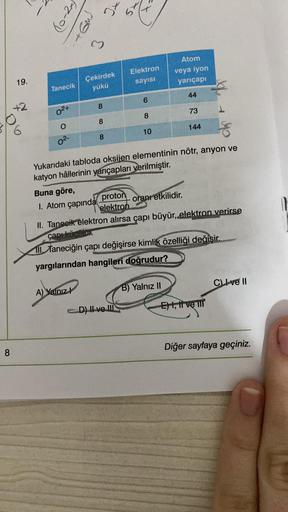 (10-2x)
19.
Tanecik Çekirdek yükü Elektron sayısı Atom veya iyon yarıçapı
O²⁺ 8 6 44
O 8 8 73
O²⁻ 8 10 144
+2
O
6
Yukarıdaki tabloda oksijen elementinin nötr, anyon ve
katyon hâllerinin yarıçapları verilmiştir.
Buna göre,
I. Atom çapında proton / elektron oranı etkilidir.
II. Tanecik elektron alırsa çapı büyür, elektron verirse
çapı küçülür.
III. Taneciğin çapı değişirse kimlik özelliği değişir.
yargılarından hangileri doğrudur?
A) Yalnız I B) Yalnız II C) I ve II
D) II ve III E) I, II ve III
8
Diğer sayfaya geçiniz.